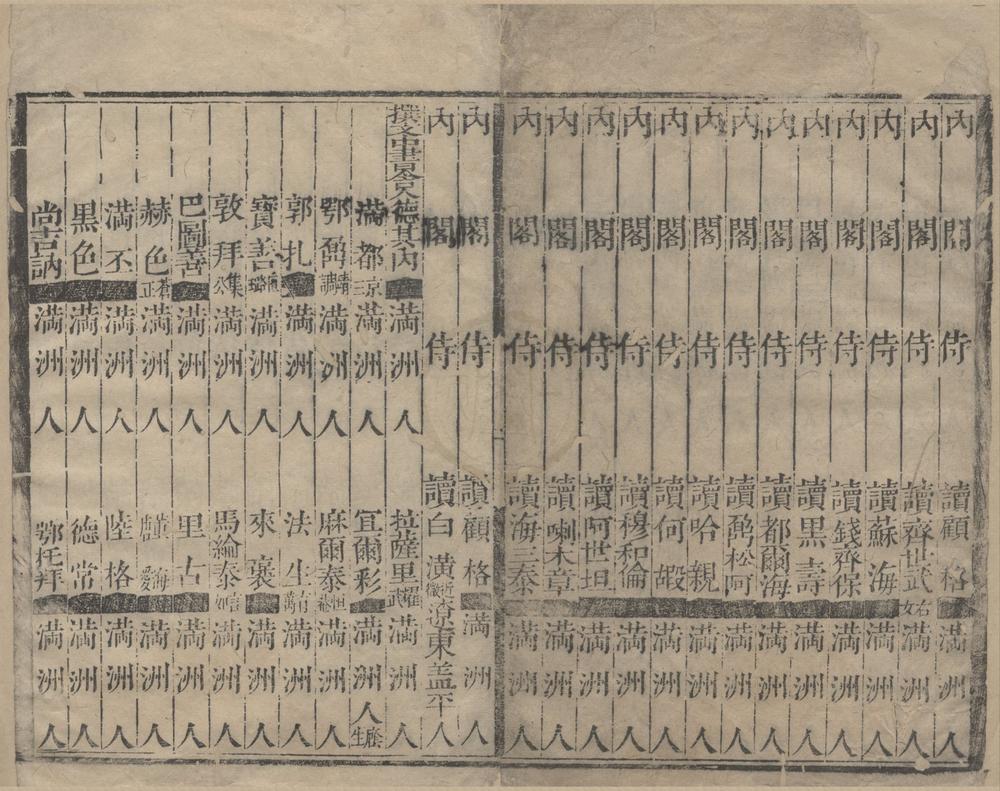 內閣侍讀顧格 滿洲人
內閣侍讀齊世武右女滿洲人
內閣侍讀蘇海 滿洲人
內閣侍讀錢齊保 滿洲人
內閣侍讀黑壽 滿洲人
內閣侍讀都爾海 滿洲人
內閣侍讀鄂松阿 滿洲人
內閣侍讀哈親 滿洲人
內閣侍讀何嘏 滿洲人
內閣侍讀穆和倫 滿洲人
內閣侍讀阿世坦 滿洲人
內閣侍讀喇木章 滿洲人
內閣侍讀海三泰 滿洲人
內閣侍讀顧格 滿洲人
內閣侍讀白潢近微遼東蓋平人
撰文中書 德其內 滿洲人 拉薩里 滿洲人
滿都京三滿洲人 宜爾彩 滿洲人
鄂 滿洲人 麻爾泰 滿洲人
郭扎 滿洲人 法生有萬滿洲人
寶善 滿洲人 來襃 滿洲人
敦拜集公滿洲人 馬綸泰 滿洲人
巴圖善 滿洲人 里古 滿洲人
赫色蒼正滿洲人 滿洲人
滿丕 滿洲人 陸格 滿洲人
黑色 滿洲人 德常 滿洲人
尚吉訥 滿洲人 鄂托拜 滿洲人